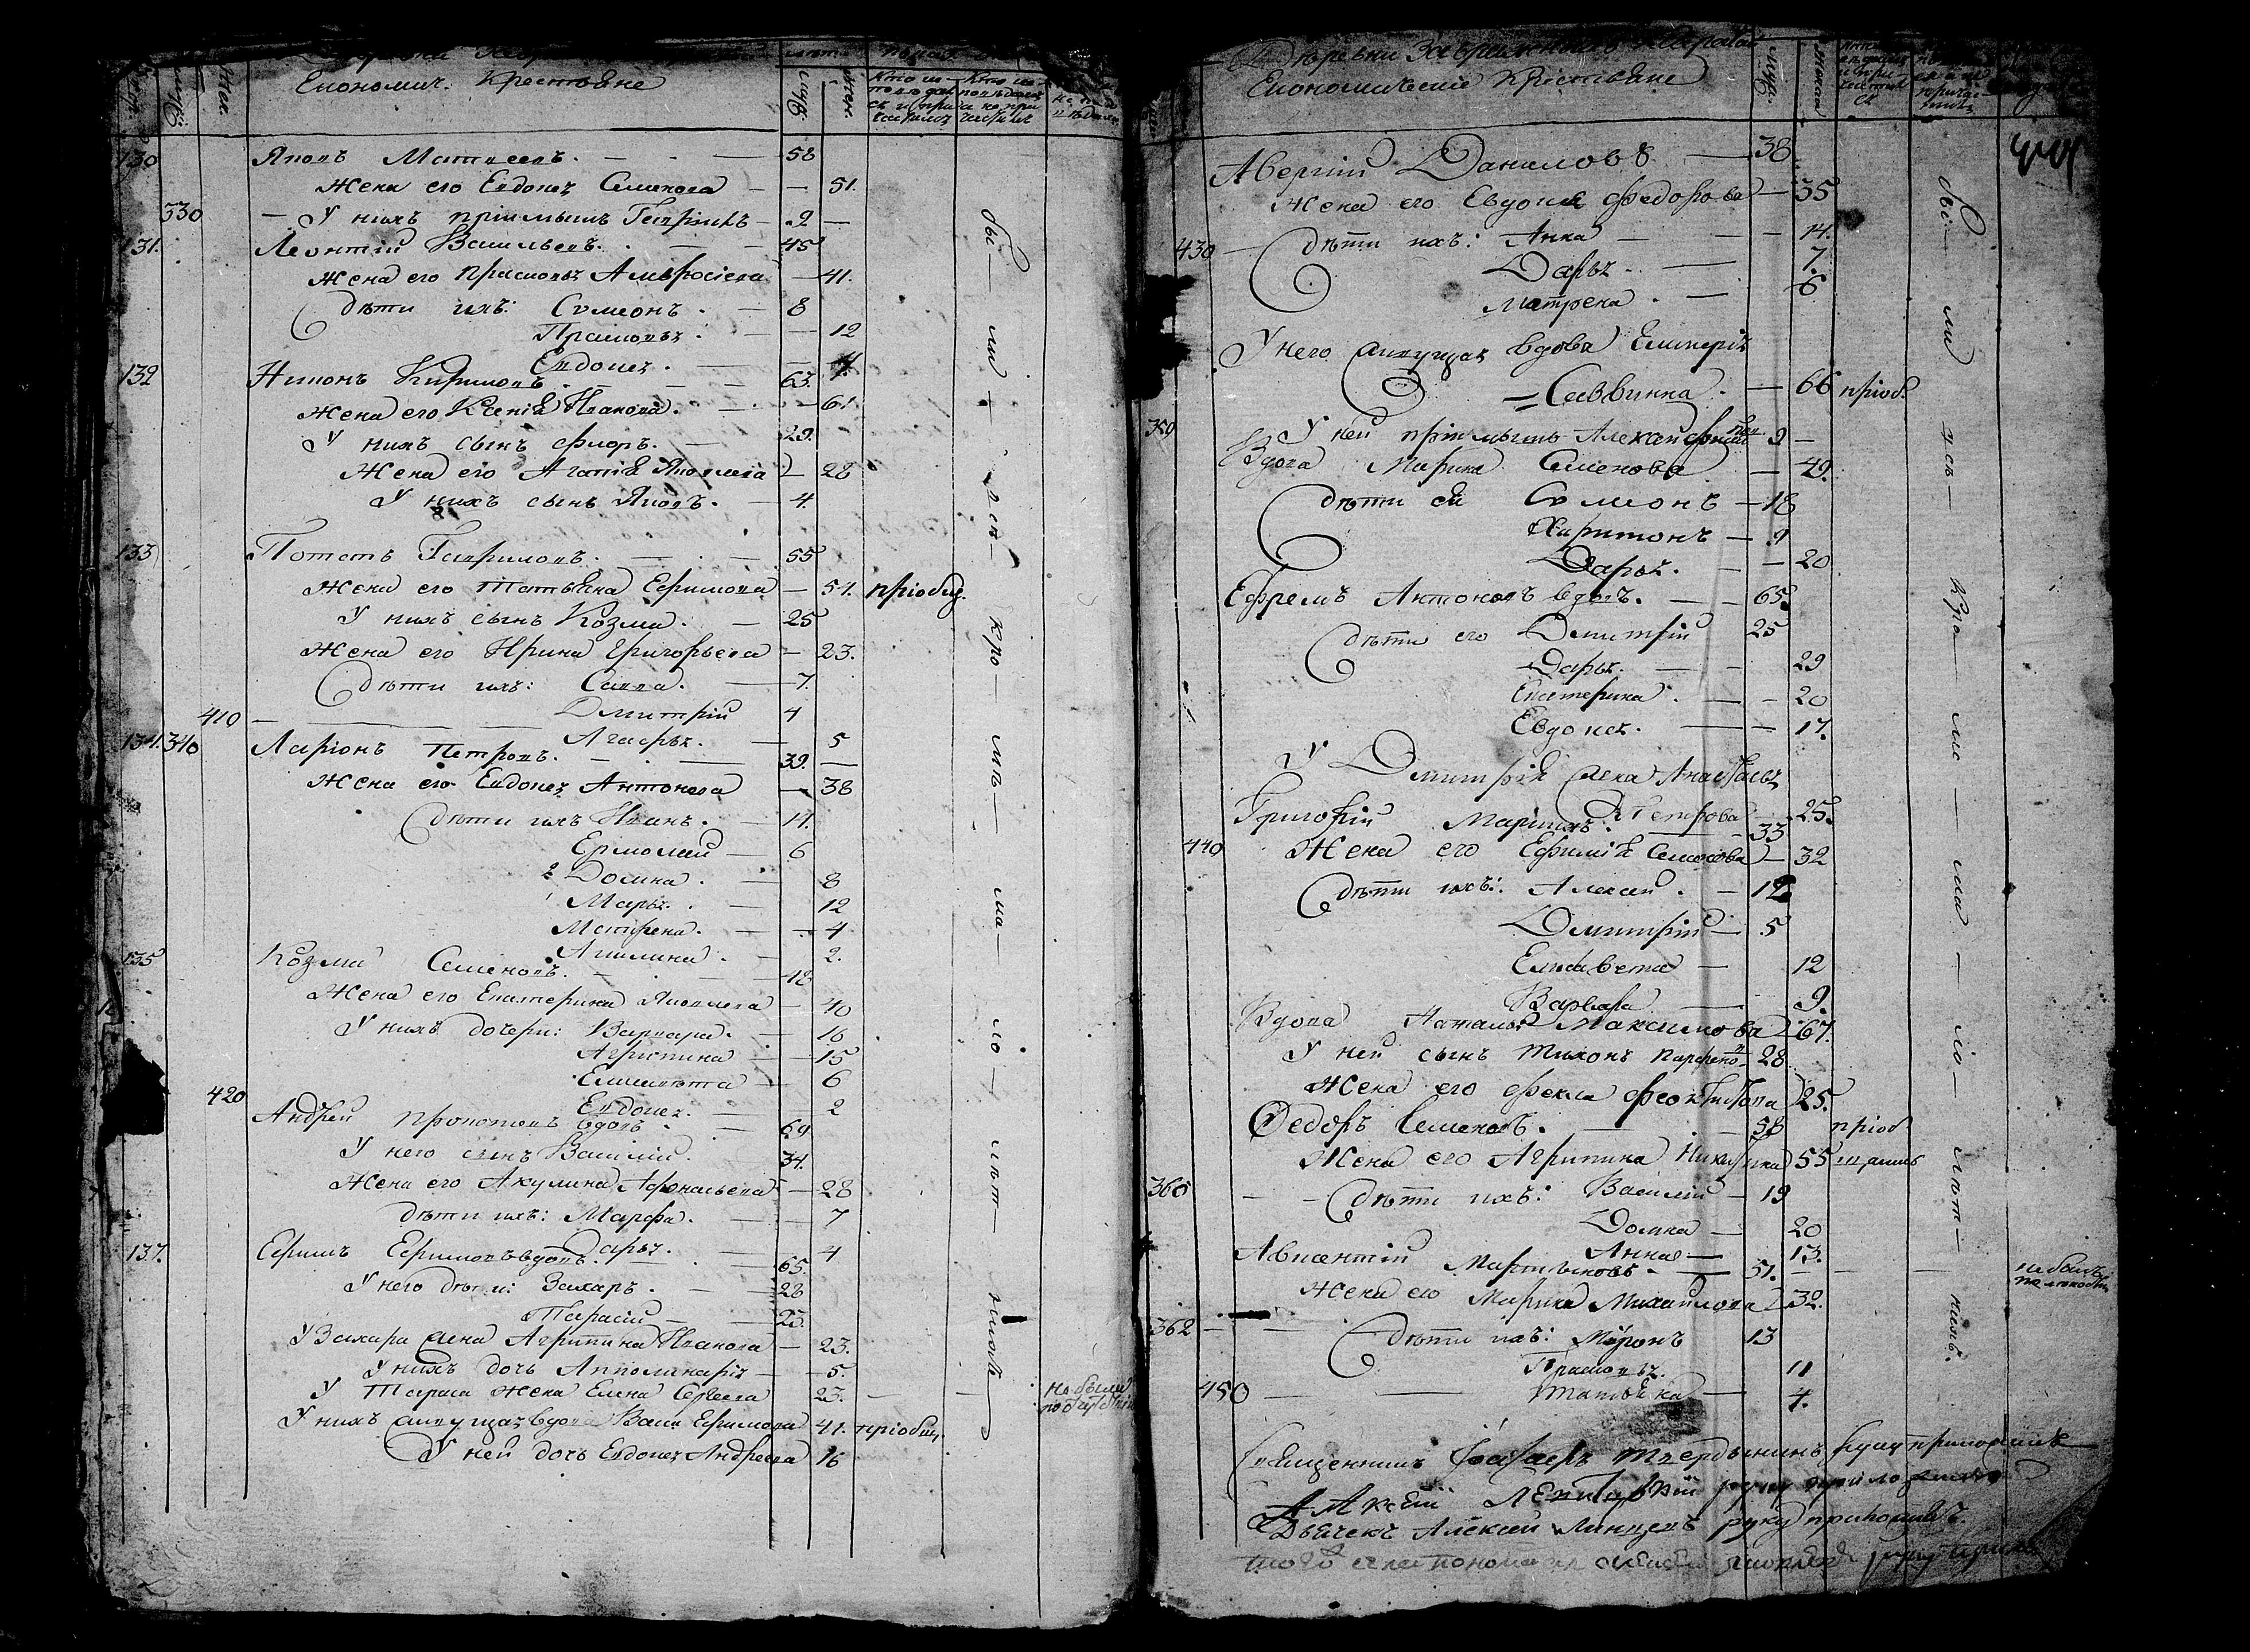 Економич. Крестьяне
лета
муж.
жен.
муж.
жен.
130 Яковъ Матвеевъ. 58
Жена его Евдокея Семенова 51.
330 У нихъ приимышъ Гаврила 2
131. Леонтий Васильевъ. 45
Жена его Прасковья Амвросиева 41.
Дѣти ихъ: Сѵмеонъ. 8
Прасковья. 12
Евдокея.
132 Никонъ Кириловъ. 63.
Жена его Ксения Иванова. 61
У нихъ сынъ Флоръ. 29.
Жена его Агафия Яковлева 28
У нихъ сынъ Яковъ. 4.
133 Потапъ Гавриловъ. 55
Жена его Татьяна Ефимова 51. приобщ.
У нихъ сынъ Козма. 25
Жена его Ирина Григорьева 23.
Дѣти ихъ: Савва. 7.
410 Дмитрий 4
Агафья. 5
134. 340 Ларионъ Петровъ. 39.
Жена его Евдокея Антонова 38
Дѣти ихъ Иванъ. 14.
Ермолай 6
2 Домна. 8
1 Марья. 12
Матрена. 4
Акилина. 2.
135 Козма Семеновъ. 48
Жена его Екатерина Яковлева 40
У нихъ дочери: Варвара. 16
Агрипина 15
Елисавета 6
420 Евдокея. 2
Андрей Прокоповъ вдовъ. 69
У него сынъ Василий. 34.
Жена его Акулина Афонасьева 28
Дѣти ихъ: Марфа. 7
Дарья. 4
137. Ефимъ Ефимовъ вдовъ. 65.
У него дѣти: Захаръ. 28
Тарасий 25.
У Захара жена Агрипина Иванова 23.
У нихъ дочь Апполинария 5.
У Тараса жена Елена Сергеева 23. не были
У нихъ живущая вдова Васа Ефимова 41. приобщ.
У ней дочь Евдокея Андреева 16
бы — ли — всѣ — кро — мѣ — ма — ло — лѣт — нихъ
Деревни
Економические Крестьяне
муж.
женска
Аверкий Даниловъ 38
Жена его Евдокия Федорова 35
430 Дѣти ихъ: Анна 14.
Дарья. 7.
Матрена. 6
У него живущая вдова Гликерия
Саввинна. 66 приоб.
350 У ней приимышъ Алексей 2
Вдова Марина Семенова 49.
Дѣти ея Сѵмеонъ 18
Харитонъ 9
Дарья. 20
Ефремъ Антоновъ вдовъ. 65.
Дѣти его Дмитрий 25
Дарья. 29
Екатерина. 20
Евдокея. 17.
У Дмитрия жена Анастасья
Петрова 25.
Григорий 33
440 Жена его Ефимия 32
Дѣти ихъ: Алексей. 12
Дмитрий 5
Елисавета 12
Варвара 9.
Вдова Наталья Максимова 67.
У ней сынъ Тихонъ Парфено 28
Жена его Фекла Феоктистова 25.
Федоръ Семеновъ. 58 приоб
Жена его Агрипина Никитина 55 щались
360 Дѣти ихъ: Василий 19
Домна 20
Анна 13.
Авксентий Мартыновъ. 51. не былъ
Жена его Марина Михайлова 32.
362 Дѣти ихъ: Миронъ 13
Прасковья. 11
450 Татьяна 4.
бы — ли всѣ — кро — ме — ма — ло — лѣт — нихъ.
Священникъ Твердынинъ руку приложилъ
руку приложилъ
Дьячекъ Алексей руку приложилъ.